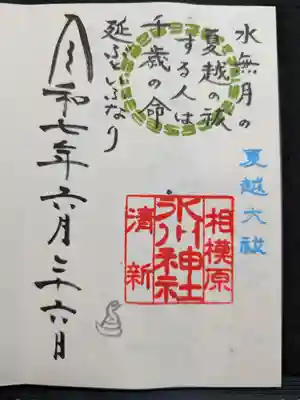 水無月の
夏越の祓
する人は
千歳の命
延ぶといふなり
夏越大祓
相模原
氷川神社
清新
令和七年六月二十六日